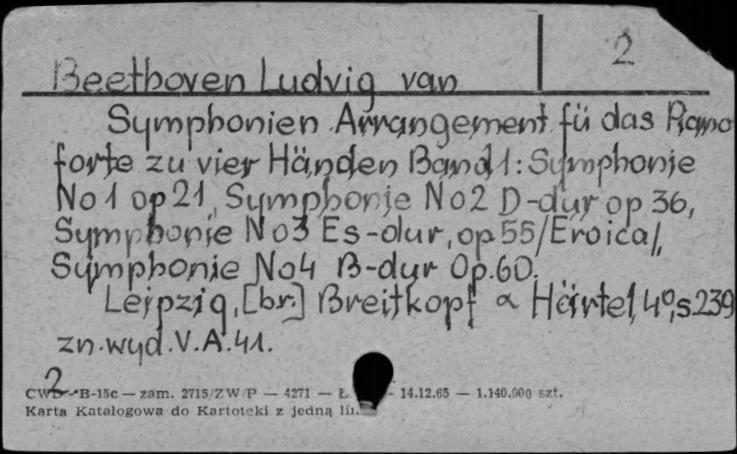 2
Beethoven Ludvig van
Symphonien Arrangement fü das Piano
forte zu vier Händen Band 1: Symphonie
No 1 op 21, Symphonie No 2 D-dur op 36,
Symphonie No 3 Es-dur, op 55 /Eroica/,
Symphonie No 4 B-dur Op. 60.
Leipzig, [br.] Breitkopf & Härtel, 4º, s. 239
zn. wyd. V. A. 41.
2
CWD B-15c — zam. 2715/ZW/P — 4271 — Ł - 14.12.65 — 1.140.000 szt.
Karta Katalogowa do Kartoteki z jedną